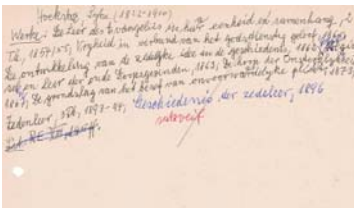 Hoekstra, Sytse (1822-1910)
Werke: De leer des Evangelies in hare eenheid en samenhang, 2
Tle, 1854/55, Vrijheid in verband met het godsdienstig geloof, 1858
De ontwikkeling van de zedelijke idee in de geschiedenis, 1862,
en leer der oude Doopsgezinden, 1863, De hoop der Onsterfelijkheid
1867, De grondslag van het besef van onvoorwaardelijke plicht, 1873,
Zedenleer, 3 dle, 1894, Geschiedenis der zedeleer, 1896
Lit. RE